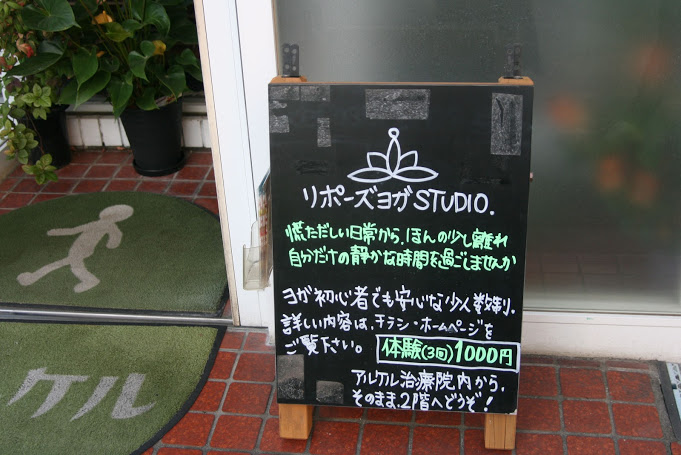 リポーズヨガSTUDIO.
慌ただしい日常から、ほんの少し離れ
自分だけの静かな時間を過ごしませんか
ヨガ初心者でも安心な少人数制.
詳しい内容は、チラシ・ホームページを
ご覧下さい。
体験(3回)1000円
アルケル治療院内から、
そのまま、2階へどうぞ!
ケル